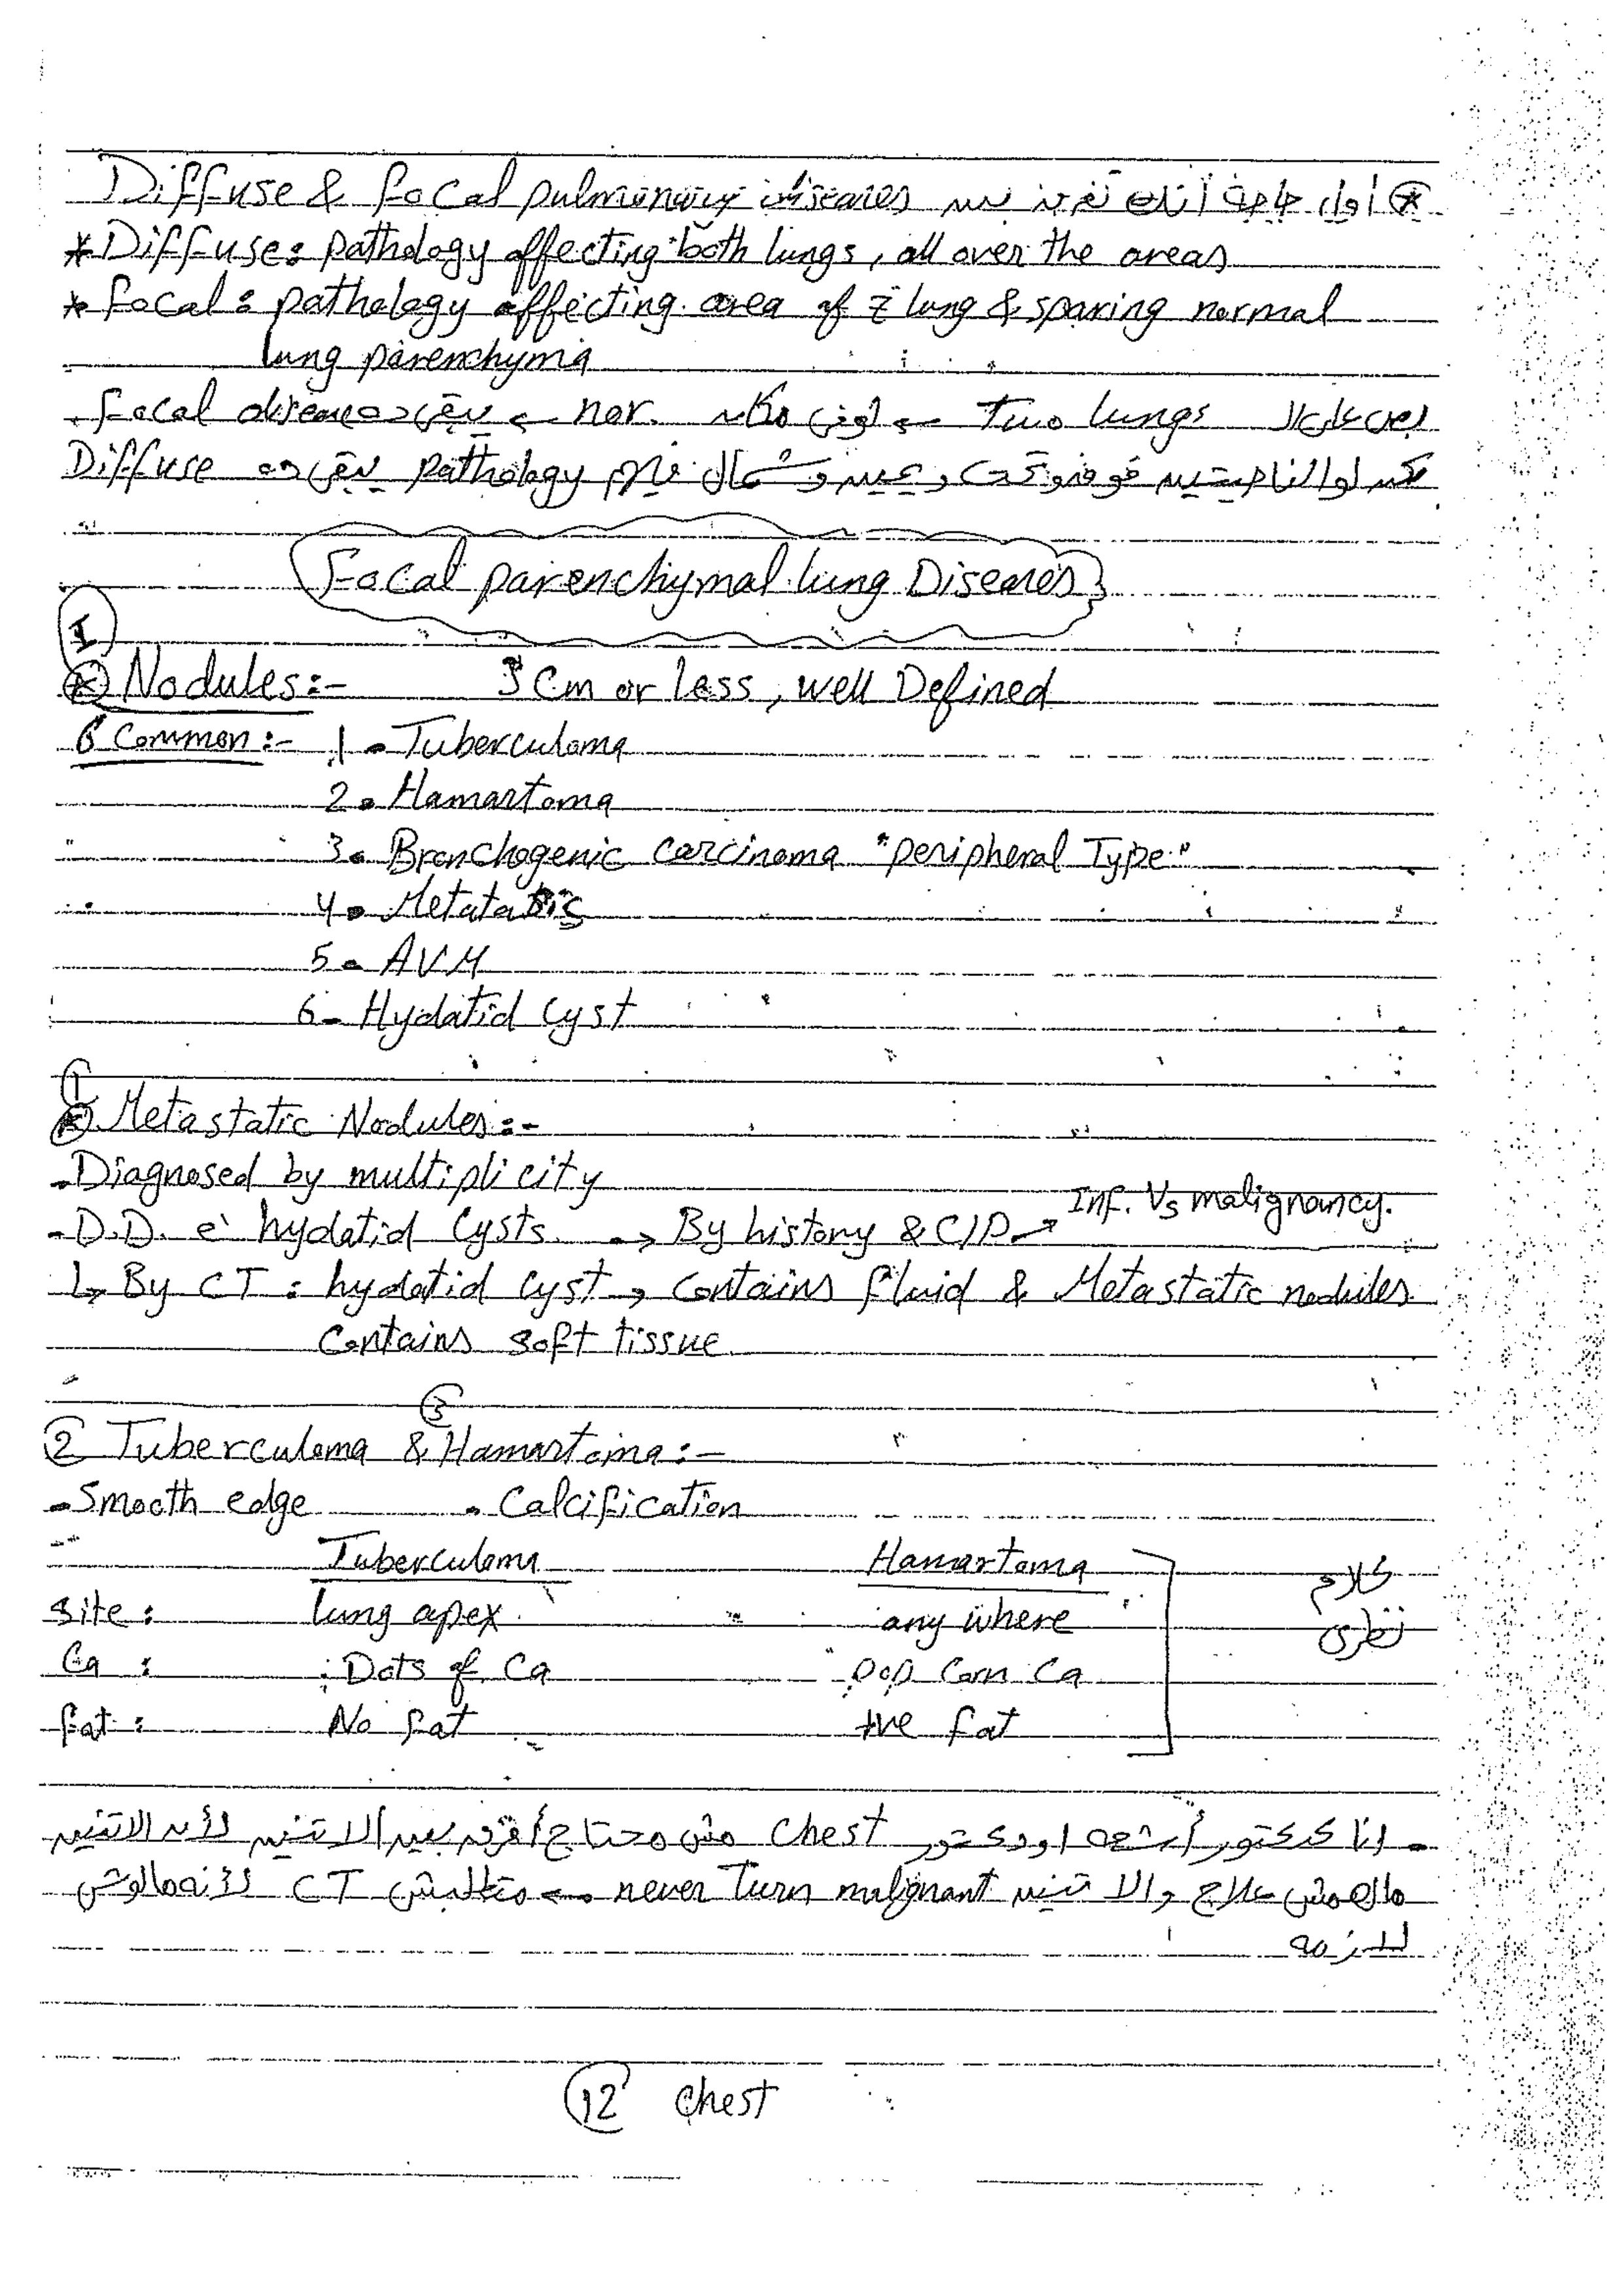 * أول حاجة انك تفرق بين Diffuse & focal pulmonary diseases
* Diffuse: pathology affecting both lungs, all over the areas
* focal: pathology affecting area of lung & sparing normal
lung parenchyma
بص على ال Two lungs → لو في مكان nor. → يبقى ده focal disease
لكن لو الناحيتين فوق وتحت ويمين وشمال فيهم pathology يبقى ده Diffuse
Focal parenchymal lung Diseases
I
* Nodules:- 3 Cm or less, well Defined
6 Common:- 1- Tuberculoma
2- Hamartoma
3- Bronchogenic carcinoma "peripheral Type"
4- Metatatic
5- AVM
6- Hydatid Cyst
1
* Metastatic Nodules:-
- Diagnosed by multiplicity
- D.D. e` hydatid Cysts → By history & C/P → Inf. Vs malignancy.
↳ By CT: hydatid cyst → contains fluid & Metastatic nodules
Contains soft tissue
② Tuberculoma & ③ Hamartoma:-
- Smooth edge - Calcification
Tuberculoma Hamartoma كلام
Site: lung apex any where نظرى
Ca: Dots of Ca pop Corn Ca
fat: No fat +ve fat
- انا كدكتور أشعه او دكتور chest مش محتاج أفرق بين الاتنين لأن الاتنين
مالهمش علاج والاتنين never Turn malignant → متطلبش CT لأنه مالوش
لازمه
12 chest